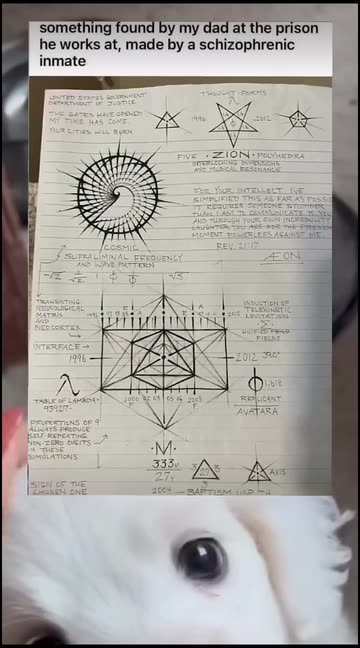 something found by my dad at the prison
he works at, made by a schizophrenic
inmate
UNITED STATES GOVERNMENT
DEPARTMENT OF JUSTICE
THE GATES HAVE OPENED
MY TIME HAS COME
YOUR CITIES WILL BURN
THOUGHT-FORMS
1996
2012
FIVE · ZION · POLYHEDRA
INTERLOCKING DIMENSIONS
AND MUSICAL RESONANCE
FOR YOUR INTELLECT, I'VE
SIMPLIFIED THIS AS FAR AS POSSI
IT REQUIRES SOMEONE
THAN I AM TO COMMUNICATE TO YOU
AND THROUGH YOUR OWN INCREDULITY
LAUGHTER YOU ARE FOR THE PRESENT
MOMENT POWERLESS AGAINST ME.
REV. 21:17
ÆON
COSMIC
SUPRALIMINAL FREQUENCY
AND WAVE PATTERN
-√2 1/√2 1 ϕ 1/ϕ √5
TRANSISTING
NEUROLOGICAL
MATRIX
AND
NEOCORTEX
INTERFACE →
1996
INDUCTION OF
TELEKINETIC
LEVITATION
UNIFIED FIELD
FIELDS
2012 360°
1.618
REPLICANT
AVATARA
λ
TABLE OF LAMBDA
PROPORTIONS OF 9
ALWAYS PRODUCE
SELF REPEATING
NON-ZERO DIGITS
IN THESE
SIMULATIONS
2000 02 03 05 14 2008
·M·
333
27
3 27 3
3
AXIS
SIGN OF THE
CHOSEN ONE
2004 — BAPTISM